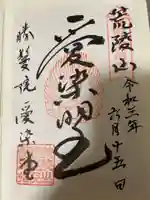 荒陵山
令和三年六月十五日
愛染明王
勝鬘院愛染堂